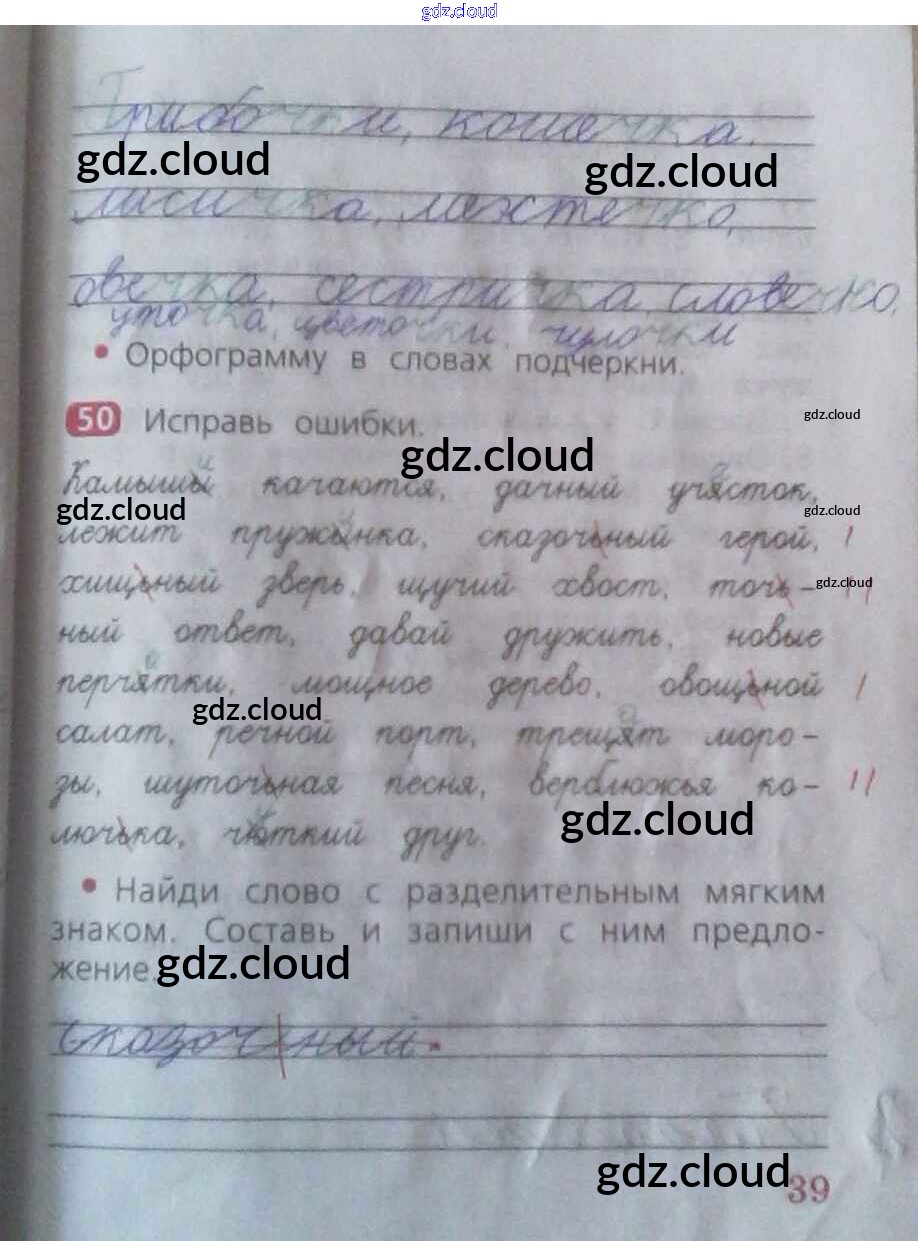 gdz.cloud
Грибочки, кошечка,
gdz.cloud gdz.cloud
лисичка, ленточка,
овечка, сестричка, словечко,
уточка, цветочки, чулочки
• Орфограмму в словах подчеркни.
50 Исправь ошибки.
gdz.cloud
gdz.cloud
Камышы качаются, дачный учясток,
gdz.cloud gdz.cloud
лежит пружынка, сказочьный герой,
хищьный зверь, щучий хвост, точь-
gdz.cloud
ный ответ, давай дружить, новые
перчятки, мощное дерево, овощьной
gdz.cloud
салат, речной порт, трещят моро-
зы, шуточьная песня, верблюжья ко-
gdz.cloud
лючька, чюткий друг.
• Найди слово с разделительным мягким
знаком. Составь и запиши с ним предло-
жение.
gdz.cloud
Сказочный.
gdz.cloud
39